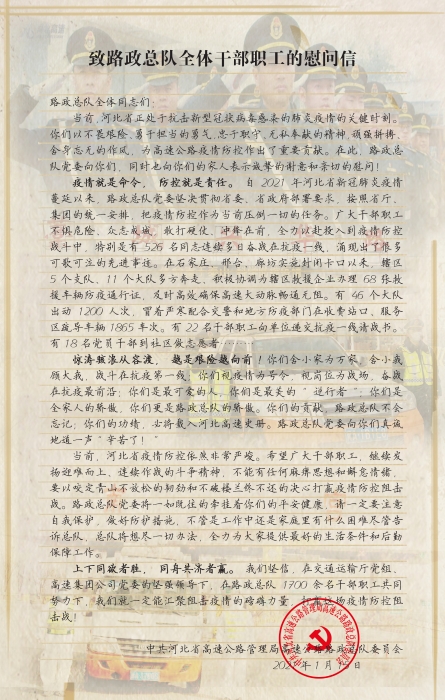 致路政总队全体干部职工的慰问信
路政总队全体同志们：
当前，河北省正处于抗击新型冠状病毒感染的肺炎疫情的关键时刻。
你们以不畏艰险、勇于担当的勇气，忠于职守、无私奉献的精神，顽强拼搏、
舍身忘光的作风，为高速公路疫情防控作出了重要贡献。在此，路政总
队党委向你们，同时也向你们的家人表示诚挚的谢意和亲切的慰问！
疫情就是命令，防控就是责任。自 2021 年河北省新冠肺炎疫情
蔓延以来，路政总队党委坚决贯彻省委、省政府部署要求，按照省厅、
集团的统一安排，把疫情防控作为当前压倒一切的任务。广大干部职工
不惧危险、众志成城、敢打硬仗、冲锋在前，全力以赴投入到疫情防控
战斗中，特别是有 526 名同志连续多日奋战在抗疫一线，涌现出了很多
可歌可泣的先进事迹。在石家庄、邢台、廊坊实施封闭卡口以来，辖区
5 个支队、11 个大队多方奔走，积极协调为辖区救援企业办理 68 张救
援车辆防疫通行证，及时高效确保高速大动脉畅通无阻。有 46 个大队
出动 1200 人次，冒着严寒配合交警和地方防疫部门在收费站口、服务
区疏导车辆 1865 车次。有 22 名干部职工向单位递交抗疫一线请战书。
有 18 名党员干部到社区做志愿者……
惊涛骇浪从容渡，越是艰险越向前！你们舍小家为万家，舍小我
顾大我，战斗在抗疫第一线。你们视疫情为号令，视岗位为战场，奋战
在抗疫最前沿；你们是最可爱的人，你们是最美的“逆行者”；你们是
全家人的骄傲，你们更是路政总队的骄傲。你们的贡献，路政总队不会
忘记；你们的功绩，必将载入河北高速史册。路政总队党委向你们真诚
地道一声“辛苦了！”
当前，河北省疫情防控依然非常严峻。希望广大干部职工，继续发
扬迎难而上、连续作战的斗争精神，不能有任何麻痹思想和懈怠情绪，
要以咬定青山不放松的韧劲和不破楼兰终不还的决心打赢疫情防控阻击
战。路政总队党委将一如既往的牵挂着你们的平安健康，请一定要注意
自我保护，做好防护措施，不管是工作中还是家庭里有什么困难尽管告
诉总队，总队将想尽一切办法，全力为大家提供最好的生活条件和后勤
保障工作。
上下同欲者胜，同舟共济者赢。我们坚信，在交通运输厅党组、
高速集团公司党委的坚强领导下，在路政总队 1700 余名干部职工共同
努力下，我们就一定能汇聚阻击疫情的磅礴力量，打赢这场疫情防控阻
击战！
中共河北省高速公路管理局高速公路路政总队委员会